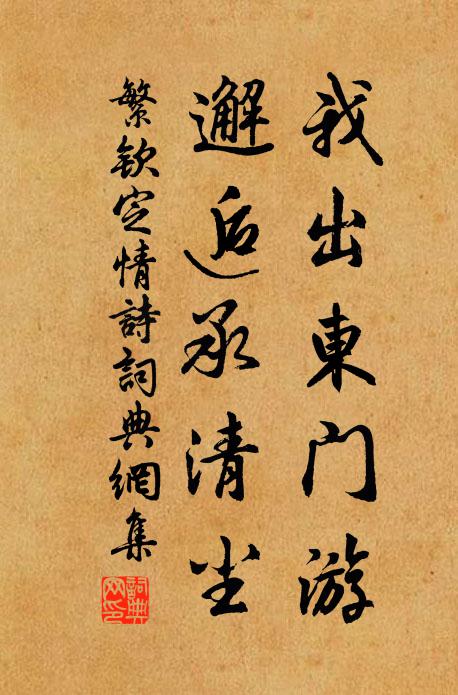 我出東門游
邂逅承清尘
繁欽定情詩詞典網集
詞典網印